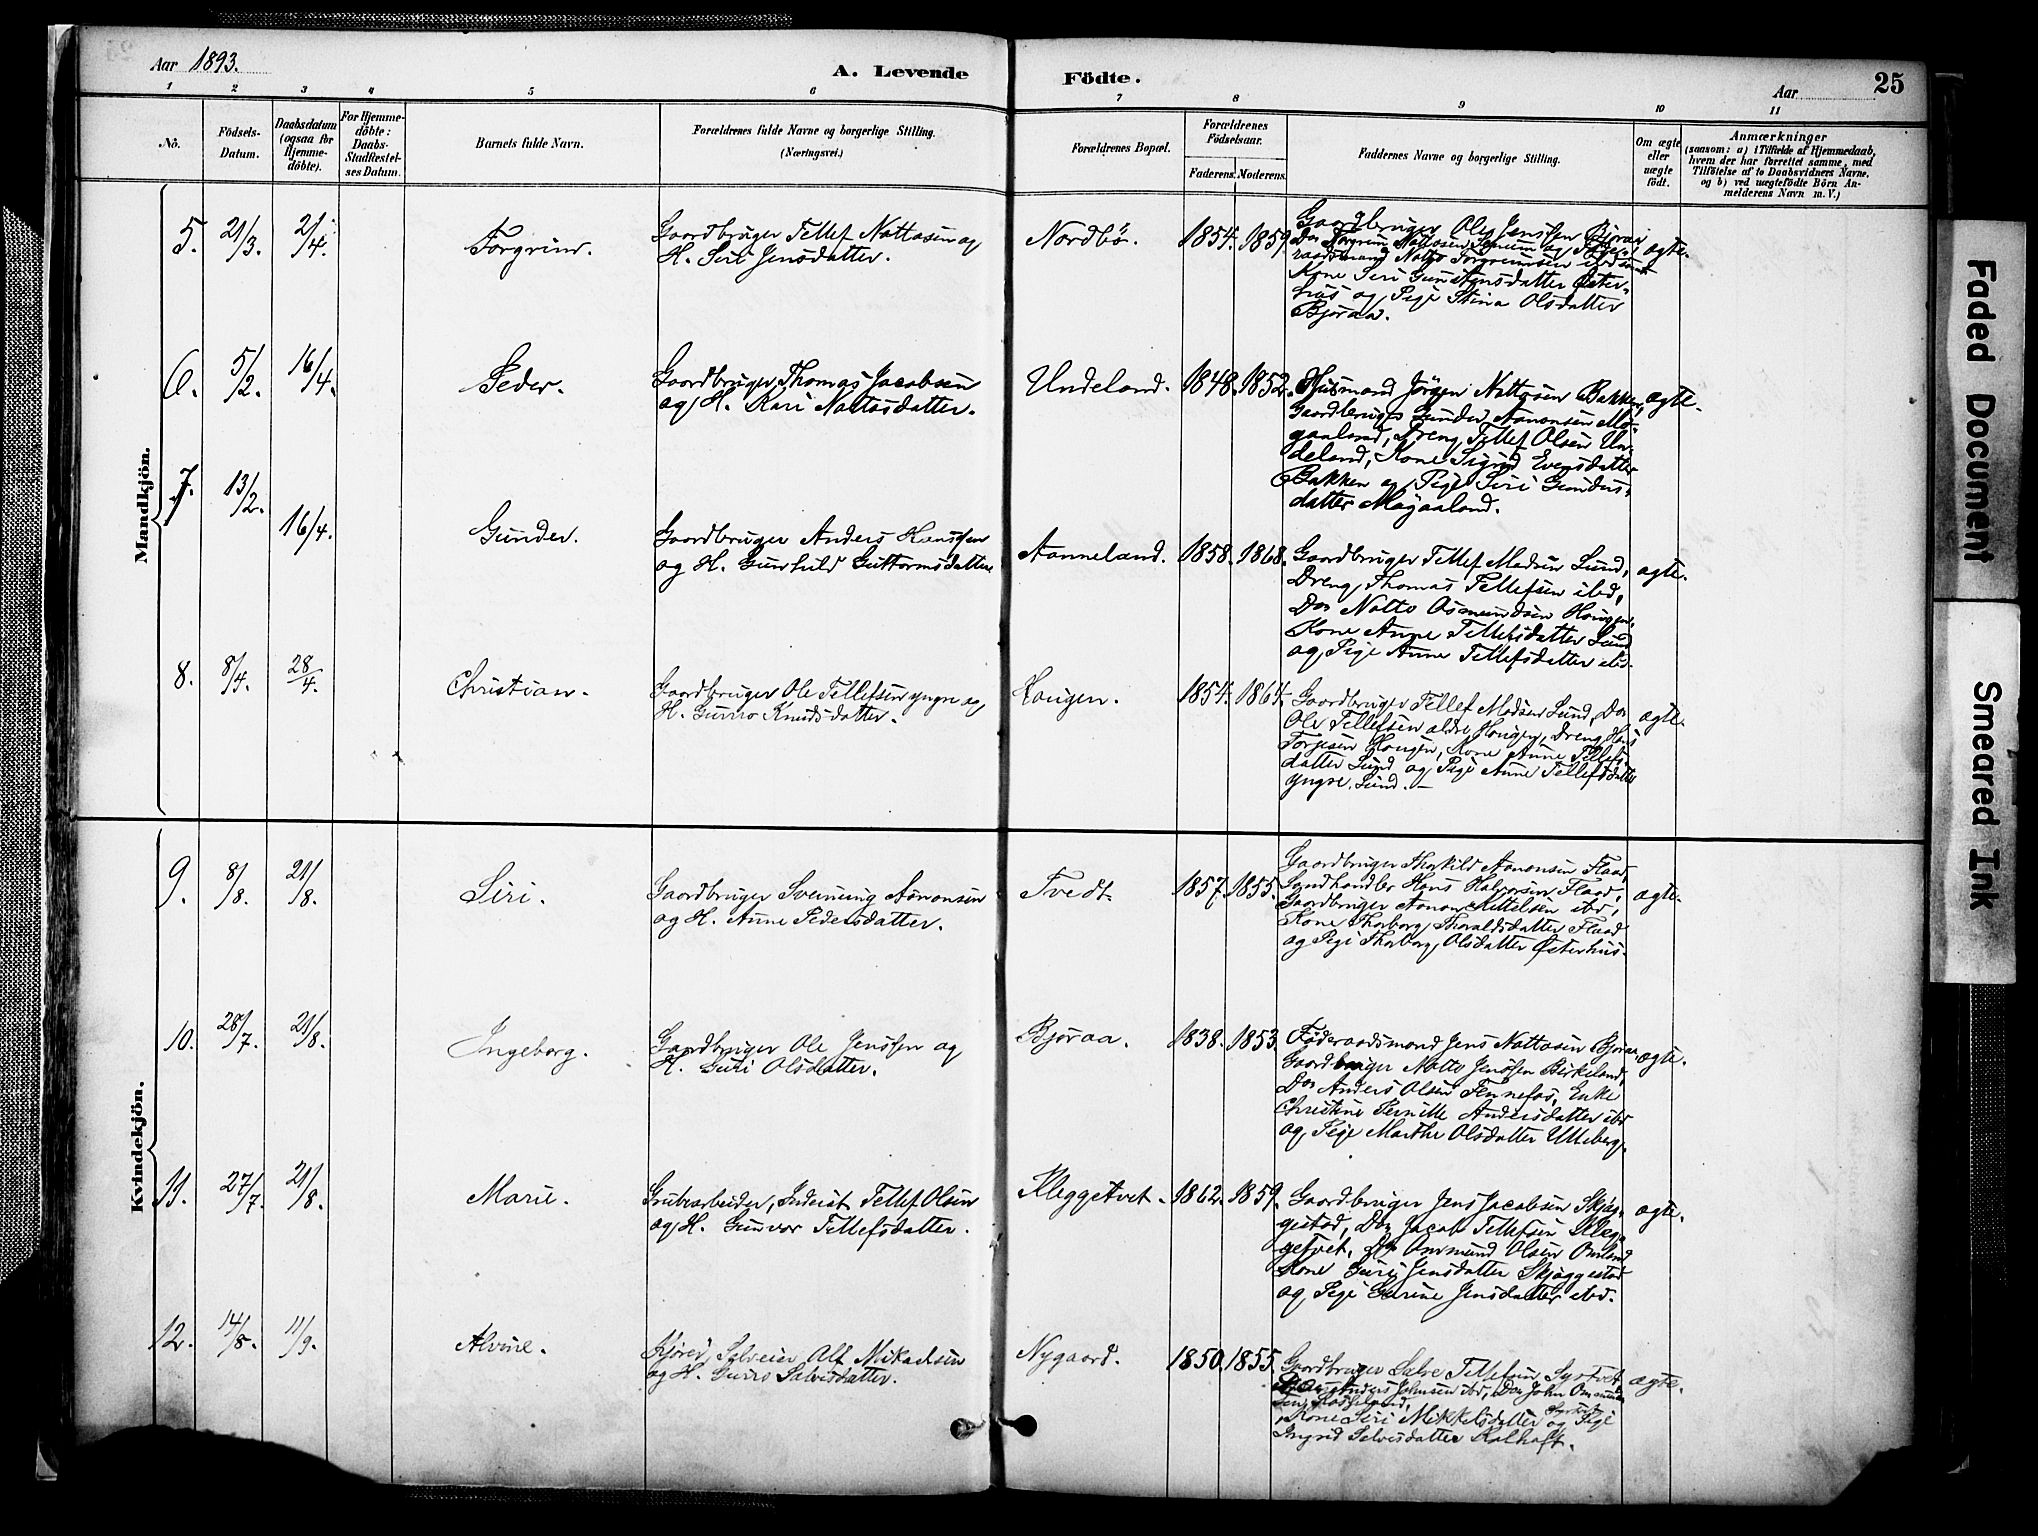 Aar 1893.
A. Levende
Födte.
Aar
25
1 2 3 4 5 6 7 8 9 10 11
No.
Födsels-
Datum.
Daabsdatum
(ogsaa for
Hjemme-
döbte).
For Hjemme-
döbte:
Daabs-
Stadfæstel-
ses Datum.
Barnets fulde Navn.
Forældrenes fulde Navne og borgerlige Stilling.
(Næringsvei.)
Forældrenes Bopæl.
Forældrenes
Födselsaar.
Faderens. Moderens.
Faddernes Navne og borgerlige Stilling.
Om ægte
eller
uægte
født.
Anmærkninger
(saasom: a) i Tilfælde af Hjemmedaab,
hvem der har forrettet samme, med
Tilföielse af to Daabsvidners Navne.
og b) ved uægtefödte Börn An-
melderens Navn m.V.)
Mandkjön.
5. 21/3. 2/4. Torgrim. Gaardbruger Tellef Nottosen og
H. Siri Jensdatter.
Nordbö. 1854. 1859.
Gaardbruger Ole Jenssen Bjoraa
Kone Siri Gunstensdatter Øster-
hus og Pige Stina Olsdatter
Bjoraa.
ægte.
6. 5/2. 16/4. Peder. Gaardbruger Thomas Jacobsen
og H. Kari Nottosdatter.
Undeland. 1848. 1852.
Husmand Jörgen Nottosen Bakken,
Gaardbruger Gunder Aanonsen Mö-
gaaland, Dreng Tellef Olsen Un-
deland, Kone Sigrid Evensdatter
Bakken og Pige Siri Gunders-
datter Mögaaland.
ægte.
7. 13/2. 16/4. Gunder. Gaardbruger Anders Hanssen
og H. Gunhild Guttormsdatter
Aanneland. 1858. 1868.
Gaardbruger Tellef Madsen Lund,
Dreng Thomas Tellefsen ibd,
Do Notto Osmundsen Hougen,
Kone Anne Tellefsdatter Lund
og Pige Anne Tellefsdatter ibd.
ægte.
8. 8/4. 28/4. Christian. Gaardbruger Ole Tellefsen yngre og
H. Gunro Knudsdatter.
Hougen. 1854. 1864.
Gaardbruger Tellef Madsen Lund, Do
Ole Tellefsen ældre Hougen, Dreng Hans
Torjesen Hougen, Kone Anne Tellefs-
datter Lund og Pige Anne Tellefsdatter
yngre, Lund. –
ægte.
Kvindekjön.
9. 8/8. 21/8. Siri. Gaardbruger Sveinung Aanonsen
og H. Anne Pedersdatter.
Tvedt. 1857. 1855.
Gaardbruger Thorkild Aanonsen Flaad,
Landhandler Hans Halvorsen Flaad,
Gaardbruger Aanon Kittelsen ibd,
Kone Thorborg Thoraldsdatter Flaad
og Pige Thorborg Olsdatter Østerhus.
ægte.
10. 28/7. 21/8. Ingeborg. Gaardbruger Ole Jenssen og
H. Guri Olsdatter.
Bjoraa. 1838. 1853.
Föderaadsmand Jens Nottosen Bjoraa,
Gaardbruger Notto Jenssen Birkeland,
Do Anders Olsen Fennefos, Enke
Christine Pernille Andersdatter ibd
og Pige Marthe Olsdatter Uleberg.
ægte.
11. 27/7. 21/8. Marie. Grubearbeider, Inderst Tellef Olsen
og H. Gunvor Tellefsdatter.
Kleggetvet. 1862. 1859.
Gaardbruger Jens Jacobsen Skjæg-
gestad, Do Jacob Tellefsen Kleg-
getvet, Do Ommund Olsen Omland,
Kone Guri Jensdatter Skjæggestad
og Pige Gurine Jensdatter ibd.
ægte.
12. 14/8. 11/9. Alvine. Selveier Alf Mikaelsen
og H. Gunro Salvesdatter.
Nygaard. 1850. 1855.
Gaardbruger Salve Tellefsen Syrtvet,
Anders Johnsen ibd, Do John Ommund-
sen
Kone Siri Mikkelsdatter Syrtvet og Pige
Ingrid Salvesdatter Kalhaft.
ægte.
Faded Document
Smeared Ink